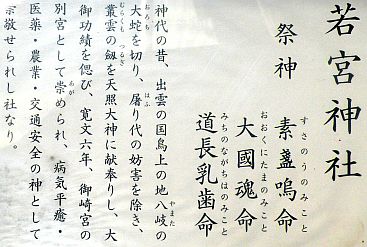 若宮神社
祭神 素盞嗚命
すさのうのみこと
大國魂命
おおくにたまのみこと
道長乳歯命
みちのながちはのみこと
神代の昔、出雲の国鳥上の地八岐の
やまた
大蛇を切り、屠り代の妨害を除き、
おろち はふ
叢雲の劔を天照大神に献奉りし、大
むらくも つるぎ
御功績を偲び、寛文六年、御崎宮の
別宮として崇められ、病気平癒・
あが
医薬・農業・交通安全の神として
崇敬せられし社なり。